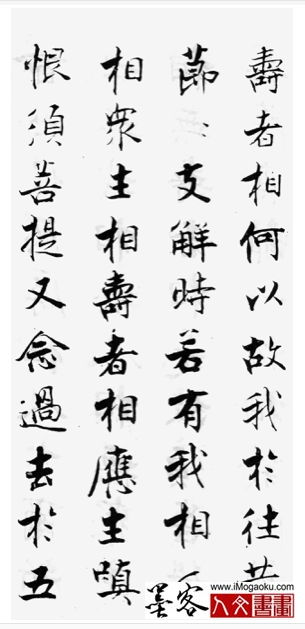 壽者相何以故我於往昔
節〻支解時若有我相
相衆生相壽者相應生嗔
恨須菩提又念過去於五
墨客
www.iMogaoku.com
人文書畫